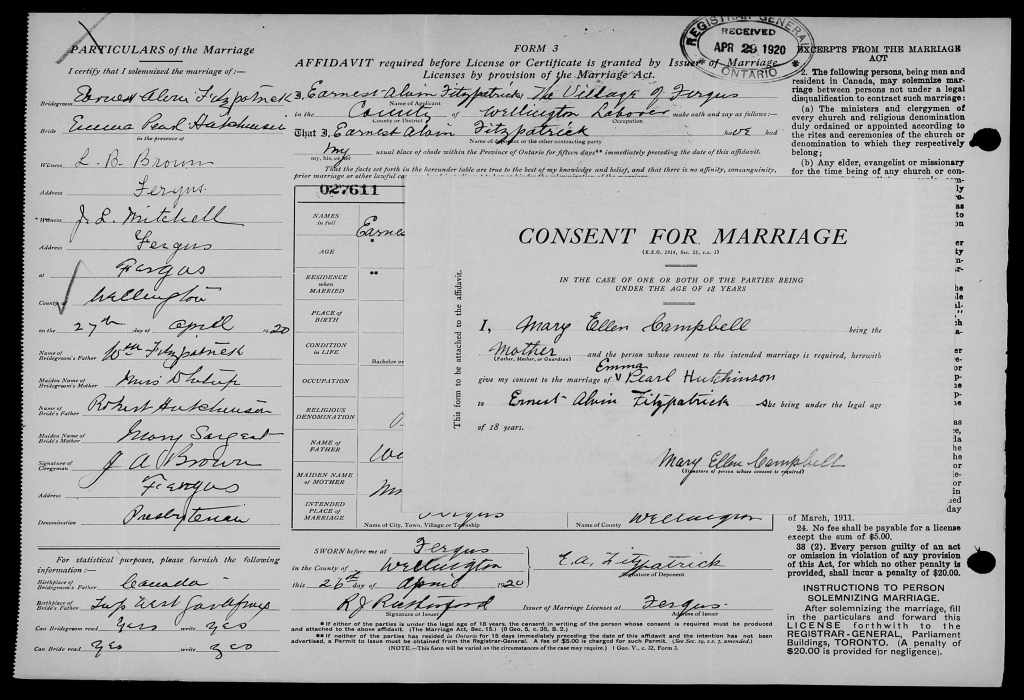 PARTICULARS of the Marriage
I certify that I solemnized the marriage of:—
Bridegroom Earnest Alvin Fitzpatrick
Bride Emma Pearl Hutchinson
in the presence of
Witness L. B. Brown
Address Fergus
Witness J. L. Mitchell
Address Fergus
at Fergus
County of Wellington
on the 27th day of April 1920
Name of Bridegroom's Father Wm Fitzpatrick
Maiden Name of Bridegroom's Mother
Name of Bride's Father Robert Hutchinson
Maiden Name of Bride's Mother Mary Sargent
Signature of Clergyman J A Brown
Address Fergus
Denomination Presbyterian
For statistical purposes, please furnish the following
information:—
Birthplace of Bridegroom's Father Canada
Birthplace of Bride's Father
Can Bridegroom read Yes write Yes
Can Bride read Yes write Yes
FORM 3
AFFIDAVIT required before License or Certificate is granted by Issuer of Marriage
Licenses by provision of the Marriage Act.
REGISTRAR GENERAL
RECEIVED
APR 29 1920
ONTARIO
I, Earnest Alvin Fitzpatrick, The Village of Fergus
Name of Applicant
in the County of Wellington Laborer make oath and say as follows:—
County or District Occupation
That I, Earnest Alvin Fitzpatrick have had
Name of Deponent or the other contracting party
my usual place of abode within the Province of Ontario for fifteen days** immediately preceding the date of this affidavit.
my, his, or her
That the facts set forth in the hereunder table are true to the best of my knowledge and belief, and that there is no affinity, consanguinity,
prior marriage or other lawful
027611
NAMES
in full
Earnes
AGE
*
RESIDENCE
when
MARRIED
**
PLACE of
BIRTH
CONDITION
in LIFE
Bachelor or
OCCUPATION
RELIGIOUS
DENOMINATION
NAME of
FATHER
MAIDEN NAME
of MOTHER
INTENDED
PLACE of
MARRIAGE
Fergus
Wellington
Name of City, Town, Village or Township
Name of County
This form to be attached to the affidavit.
CONSENT FOR MARRIAGE
(R.S.O. 1914, Sec. 15, c.s. 1)
IN THE CASE OF ONE OR BOTH OF THE PARTIES BEING
UNDER THE AGE OF 18 YEARS
I, Mary Ellen Campbell being the
Mother and the person whose consent to the intended marriage is required, herewith
(Father, Mother, or Guardian)
give my consent to the marriage of Emma Pearl Hutchinson
to Ernest Alvin Fitzpatrick She being under the legal age
of 18 years.
Mary Ellen Campbell
(Signature of person whose consent is required)
SWORN before me at Fergus
in the County of Wellington
this 26th day of April 1920
E. A. Fitzpatrick
Signature of Deponent
R J Rutherford Issuer of Marriage Licenses at Fergus.
Signature of Issuer Address
* If either of the parties is under the legal age of 18 years, the consent in writing of the person whose consent is required must be produced
and attached to the above affidavit. (The Marriage Act, Sec. 15.) (9 Geo. 5, c. 35, S. 2.)
** If neither of the parties has resided in Ontario for 15 days immediately preceding the date of this affidavit and the intention has not been
advertised, a Permit to issue must be obtained from the Registrar-General. A fee of $5.00 is charged for such Permit. (See Sec. 19, s.s. 7, amended.)
(NOTE.—This form will be varied as the circumstances of the case may require.) 1 Geo. V., c. 32, Form 3.
EXCERPTS FROM THE MARRIAGE
ACT
2. The following persons, being men and
resident in Canada, may solemnize mar-
riage between persons not under a legal
disqualification to contract such marriage:
(a) The ministers and clergymen of
every church and religious denomination
duly ordained or appointed according to
the rites and ceremonies of the church or
denomination to which they respectively
belong;
(b) Any elder, evangelist or missionary
for the time being of any church or con-
of March, 1911.
24. No fee shall be payable for a license
except the sum of $5.00.
38 (2). Every person guilty of an act
or omission in violation of any provision
of this Act, for which no other penalty is
provided, shall incur a penalty of $20.00.
INSTRUCTIONS TO PERSON
SOLEMNIZING MARRIAGE.
After solemnizing the marriage, fill
in the particulars and forward this
LICENSE forthwith to the
REGISTRAR-GENERAL, Parliament
Buildings, TORONTO. (A penalty of
$20.00 is provided for negligence).